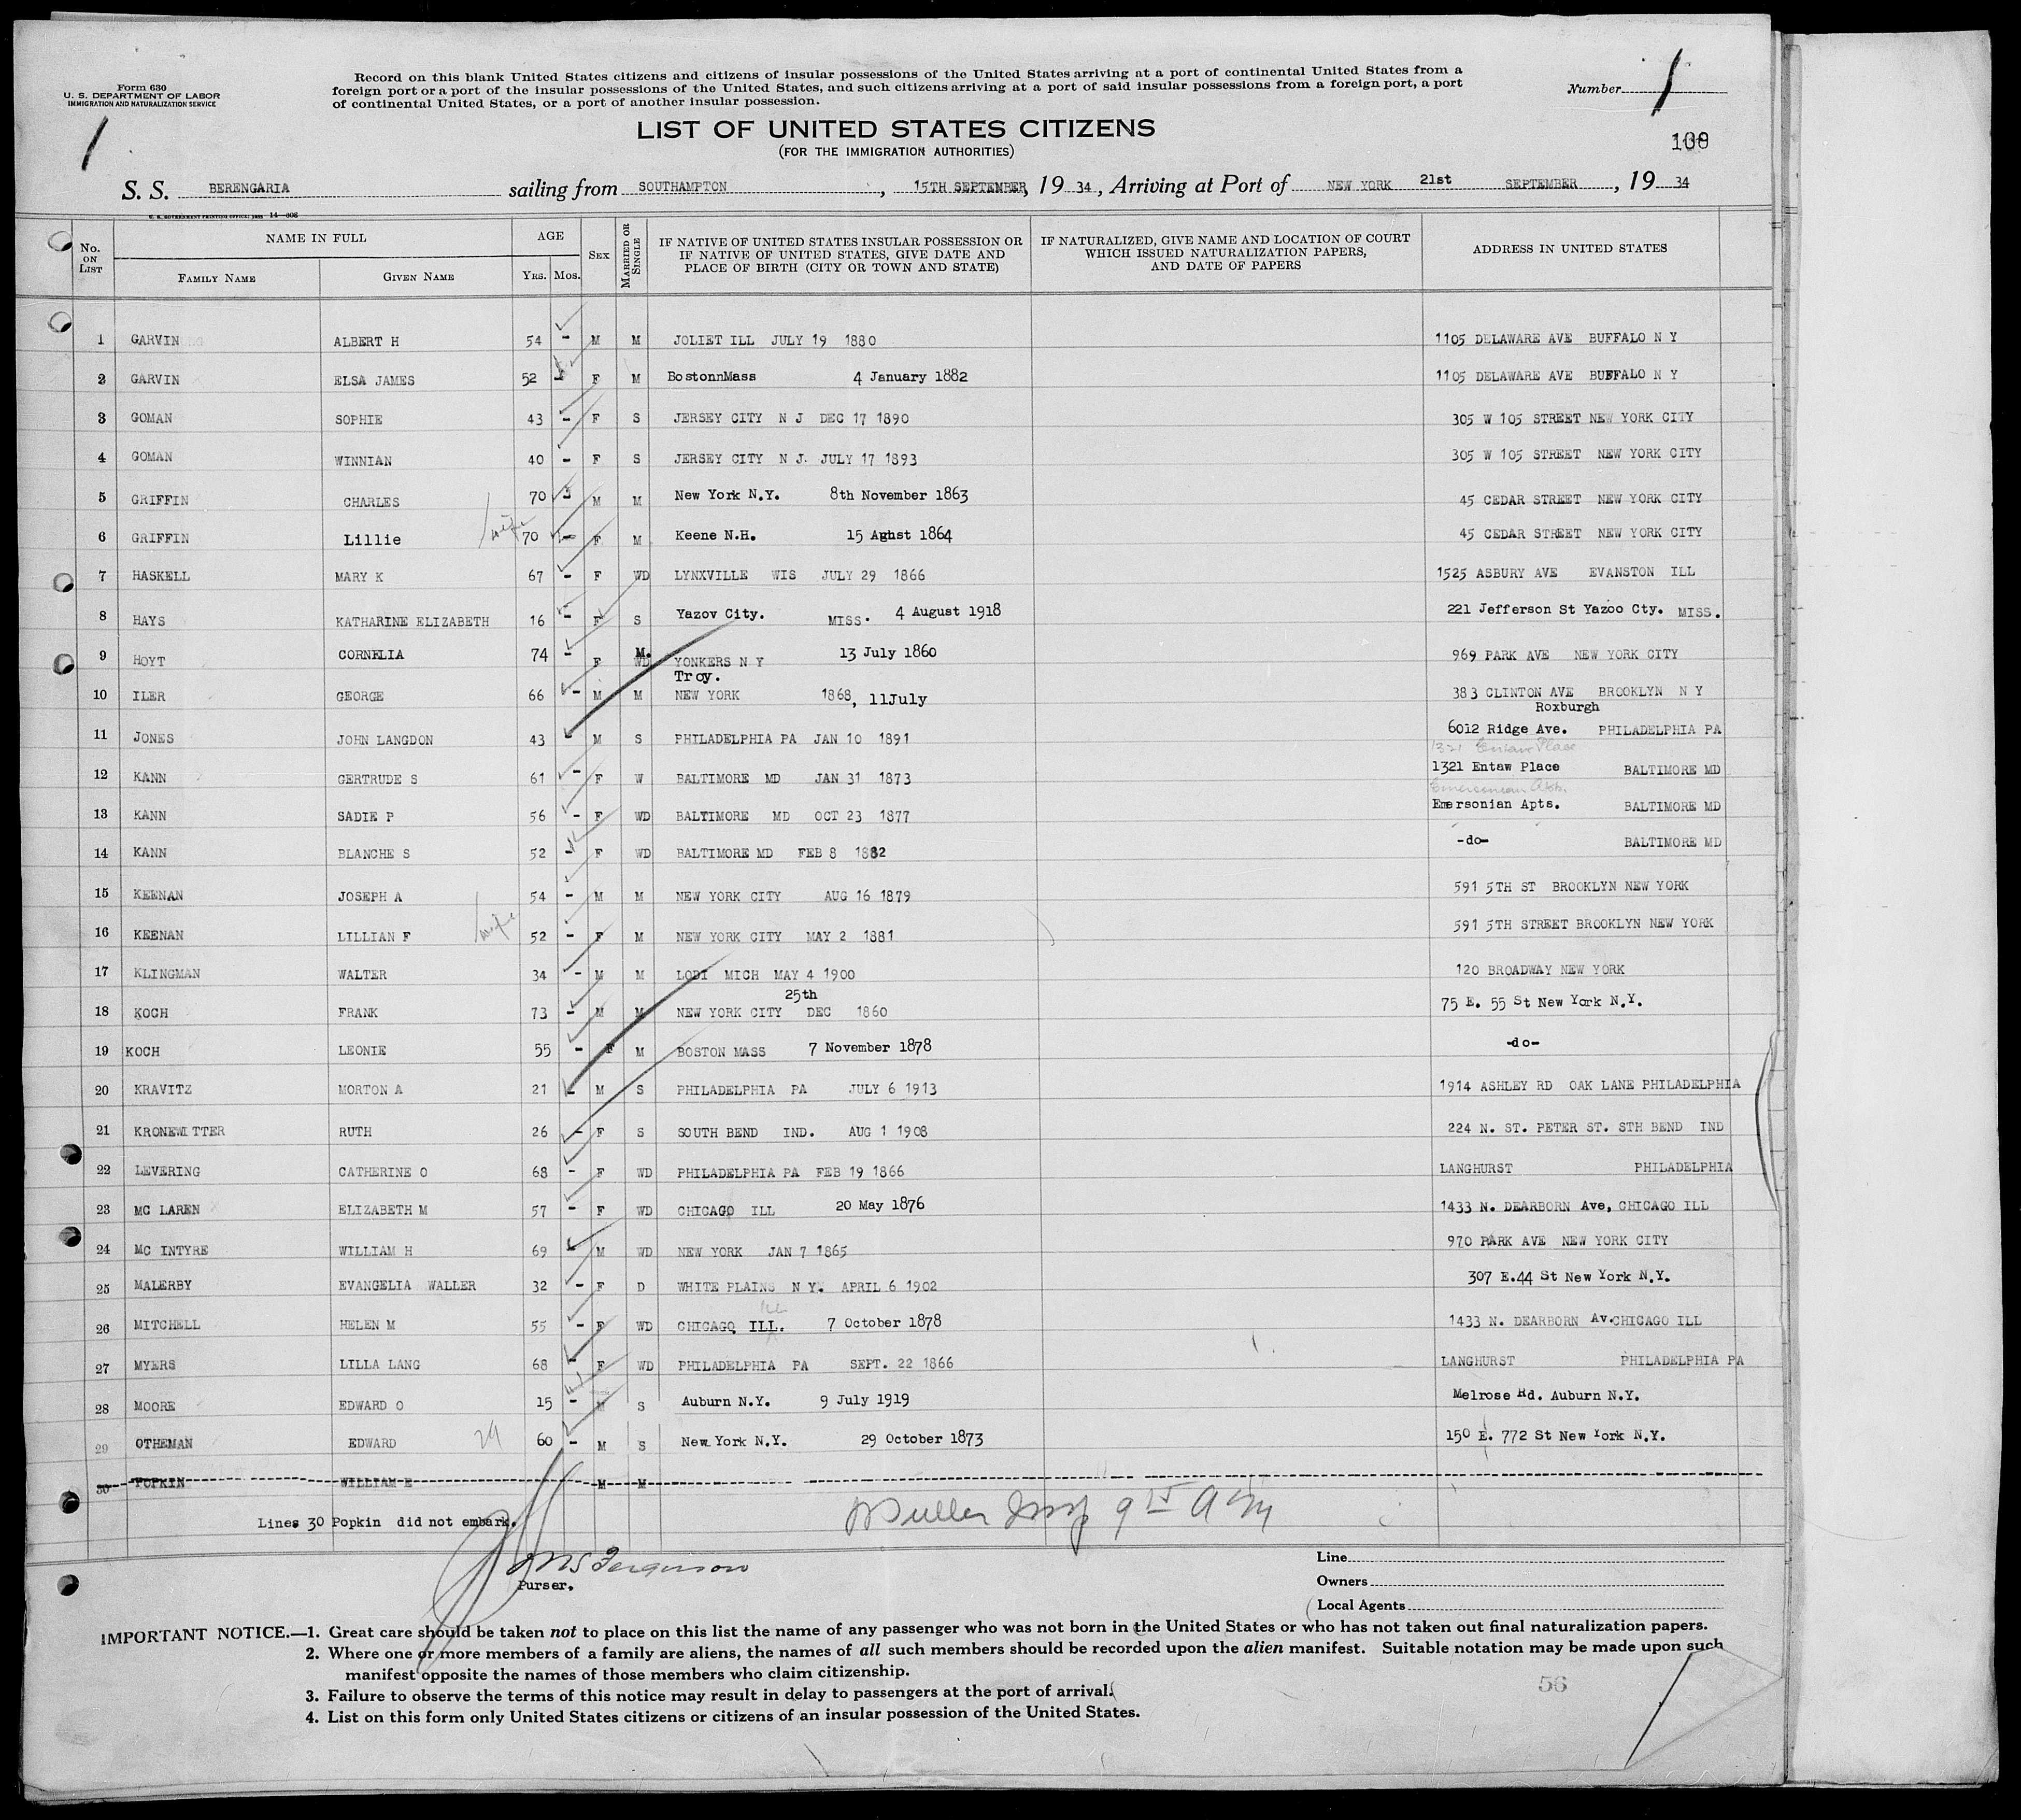 Form 630
U. S. DEPARTMENT OF LABOR
IMMIGRATION AND NATURALIZATION SERVICE
Record on this blank United States citizens and citizens of insular possessions of the United States arriving at a port of continental United States from a
foreign port or a port of the insular possessions of the United States, and such citizens arriving at a port of said insular possessions from a foreign port, a port
of continental United States, or a port of another insular possession.
Number 1
1
LIST OF UNITED STATES CITIZENS
(FOR THE IMMIGRATION AUTHORITIES)
S. S. BERENGARIA sailing from SOUTHAMPTON, 15TH SEPTEMBER, 19 34, Arriving at Port of NEW YORK 21st SEPTEMBER, 19 34
No. ON LIST NAME IN FULL FAMILY NAME GIVEN NAME AGE YRS. MOS. SEX MARRIED OR SINGLE IF NATIVE OF UNITED STATES INSULAR POSSESSION OR IF NATIVE OF UNITED STATES, GIVE DATE AND PLACE OF BIRTH (CITY OR TOWN AND STATE) IF NATURALIZED, GIVE NAME AND LOCATION OF COURT WHICH ISSUED NATURALIZATION PAPERS, AND DATE OF PAPERS ADDRESS IN UNITED STATES
1 GARVIN ALBERT H 54 - M M JOLIET ILL JULY 19 1880 1105 DELAWARE AVE BUFFALO N Y
2 GARVIN ELSA JAMES 52 - F M BostonnMass 4 January 1882 1105 DELAWARE AVE BUFFALO N Y
3 GOMAN SOPHIE 43 - F S JERSEY CITY N J DEC 17 1890 305 W 105 STREET NEW YORK CITY
4 GOMAN WINNIAN 40 - F S JERSEY CITY N J. JULY 17 1893 305 W 105 STREET NEW YORK CITY
5 GRIFFIN CHARLES 70 - M M New York N.Y. 8th November 1863 45 CEDAR STREET NEW YORK CITY
6 GRIFFIN Lillie wife 70 - F M Keene N.H. 15 1864 45 CEDAR STREET NEW YORK CITY
7 HASKELL MARY K 67 - F WD LYNXVILLE WIS JULY 29 1866 1525 ASBURY AVE EVANSTON ILL
8 HAYS KATHARINE ELIZABETH 16 - F S Yazov City. MISS. 4 August 1918 221 Jefferson St Yazoo Cty. MISS.
9 HOYT CORNELIA 74 - F M. WD YONKERS N Y 13 July 1860 969 PARK AVE NEW YORK CITY
Troy.
10 ILER GEORGE 66 - M M NEW YORK 1868, 11July 383 CLINTON AVE BROOKLYN N Y
Roxburgh
11 JONES JOHN LANGDON 43 - M S PHILADELPHIA PA JAN 10 1891 6012 Ridge Ave. PHILADELPHIA PA
1321 Entaw Place
12 KANN GERTRUDE S 61 - F W BALTIMORE MD JAN 31 1873 1321 Entaw Place BALTIMORE MD
Emersonian Apts.
13 KANN SADIE P 56 - F WD BALTIMORE MD OCT 23 1877 Emersonian Apts. BALTIMORE MD
14 KANN BLANCHE S 52 - F WD BALTIMORE MD FEB 8 1882 -do- BALTIMORE MD
15 KEENAN JOSEPH A 54 - M M NEW YORK CITY AUG 16 1879 591 5TH ST BROOKLYN NEW YORK
16 KEENAN LILLIAN F wife 52 - F M NEW YORK CITY MAY 2 1881 591 5TH STREET BROOKLYN NEW YORK
17 KLINGMAN WALTER 34 - M M LODI MICH MAY 4 1900 120 BROADWAY NEW YORK
25th
18 KOCH FRANK 73 - M M NEW YORK CITY DEC 1860 75 E. 55 St New York N.Y.
19 KOCH LEONIE 55 - F M BOSTON MASS 7 November 1878 -do-
20 KRAVITZ MORTON A 21 - M S PHILADELPHIA PA JULY 6 1913 1914 ASHLEY RD OAK LANE PHILADELPHIA
21 KRONEWITTER RUTH 26 - F S SOUTH BEND IND. AUG 1 1908 224 N. ST. PETER ST. STH BEND IND
22 LEVERING CATHERINE O 68 - F WD PHILADELPHIA PA FEB 19 1866 LANGHURST PHILADELPHIA
23 MC LAREN ELIZABETH M 57 - F WD CHICAGO ILL 20 May 1876 1433 N. DEARBORN Ave, CHICAGO ILL
24 MC INTYRE WILLIAM H 69 - M WD NEW YORK JAN 7 1865 970 PARK AVE NEW YORK CITY
25 MALERBY EVANGELIA WALLER 32 - F D WHITE PLAINS N Y. APRIL 6 1902 307 E.44 St New York N.Y.
26 MITCHELL HELEN M 55 - F WD CHICAGO ILL. 7 October 1878 1433 N. DEARBORN Av.CHICAGO ILL
27 MYERS LILLA LANG 68 - F WD PHILADELPHIA PA SEPT. 22 1866 LANGHURST PHILADELPHIA PA
28 MOORE EDWARD O 15 - M S Auburn N.Y. 9 July 1919 Melrose Rd. Auburn N.Y.
29 OTHEMAN EDWARD 29 60 - M S New York N.Y. 29 October 1873 150 E. 772 St New York N.Y.
30 POPKIN WILLIAM E M M
Lines 30 Popkin did not embark.
Purser.
Line
Owners
Local Agents
IMPORTANT NOTICE.—1. Great care should be taken not to place on this list the name of any passenger who was not born in the United States or who has not taken out final naturalization papers.
2. Where one or more members of a family are aliens, the names of all such members should be recorded upon the alien manifest. Suitable notation may be made upon such
manifest opposite the names of those members who claim citizenship.
3. Failure to observe the terms of this notice may result in delay to passengers at the port of arrival.
4. List on this form only United States citizens or citizens of an insular possession of the United States.
56